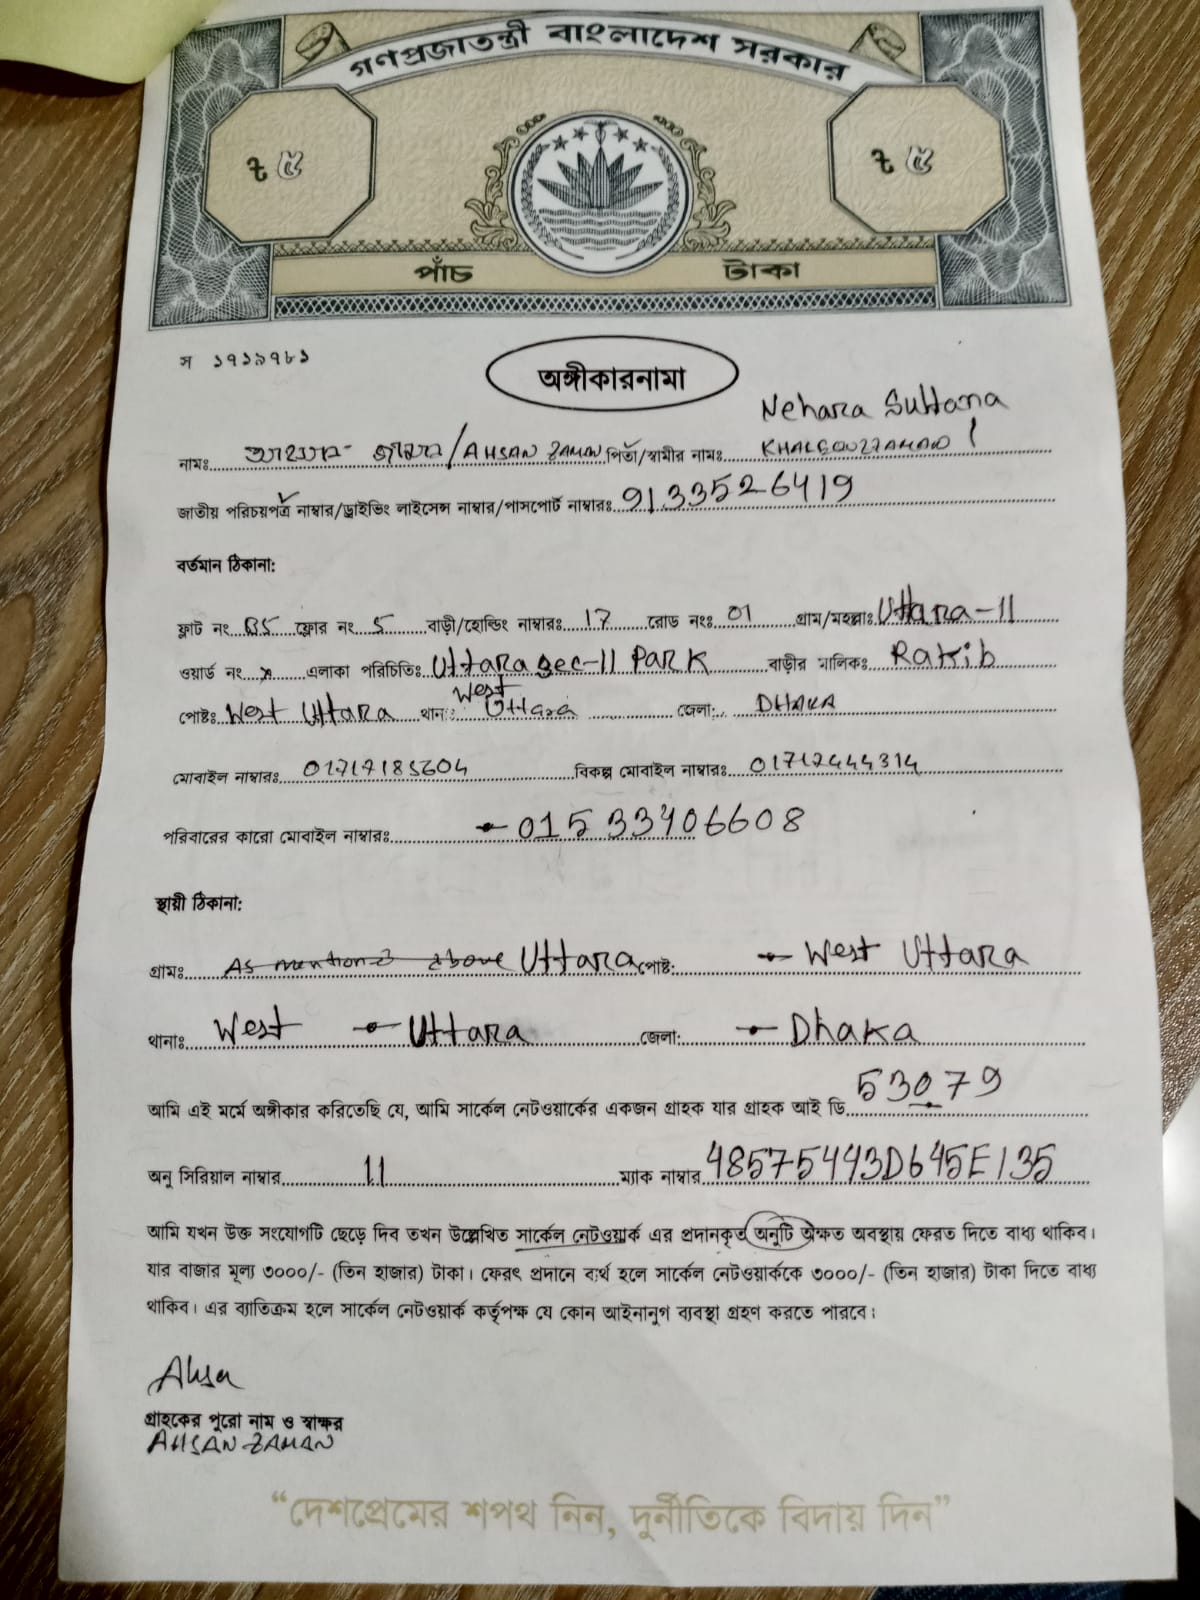 গণপ্রজাতন্ত্রী বাংলাদেশ সরকার
৳ ৫ ৳ ৫
পাঁচ টাকা
স ১৭১৯৭৮১
অঙ্গীকারনামা
Nehara Sultana
নামঃ /AHSAN ZAMAN পিতা/স্বামীর নামঃ
জাতীয় পরিচয়পত্র নাম্বার/ড্রাইভিং লাইসেন্স নাম্বার/পাসপোর্ট নাম্বারঃ 9133526419
বর্তমান ঠিকানা:
ফ্লাট নং B5 ফ্লোর নং 5 বাড়ী/হোল্ডিং নাম্বারঃ 17 রোড নংঃ 01 গ্রাম/মহল্লাঃ Uttara-11
ওয়ার্ড নং x এলাকা পরিচিতিঃ Uttara Sec-11 PARK বাড়ীর মালিকঃ Rakib
পোষ্টঃ West Uttara থানা: West Uttara জেলা: DHAKA
মোবাইল নাম্বারঃ 01717185604 বিকল্প মোবাইল নাম্বারঃ 01712444314
পরিবারের কারো মোবাইল নাম্বারঃ 01533406608
স্থায়ী ঠিকানা:
গ্রামঃ As mentioned above Uttara পোষ্ট: West Uttara
থানাঃ West Uttara জেলা: Dhaka
আমি এই মর্মে অঙ্গীকার করিতেছি যে, আমি সার্কেল নেটওয়ার্কের একজন গ্রাহক যার গ্রাহক আই ডি 53079
অনু সিরিয়াল নাম্বার 11 ম্যাক নাম্বার 48575443D645E135
আমি যখন উক্ত সংযোগটি ছেড়ে দিব তখন উল্লেখিত সার্কেল নেটওয়ার্ক এর প্রদানকৃত অনুটি অক্ষত অবস্থায় ফেরত দিতে বাধ্য থাকিব।
যার বাজার মূল্য ৩০০০/- (তিন হাজার) টাকা। ফেরৎ প্রদানে ব্যর্থ হলে সার্কেল নেটওয়ার্ককে ৩০০০/- (তিন হাজার) টাকা দিতে বাধ্য
থাকিব। এর ব্যাতিক্রম হলে সার্কেল নেটওয়ার্ক কর্তৃপক্ষ যে কোন আইনানুগ ব্যবস্থা গ্রহণ করতে পারবে।
Ahsa
গ্রাহকের পুরো নাম ও স্বাক্ষর
AHSAN ZAMAN
“দেশপ্রেমের শপথ নিন, দুর্নীতিকে বিদায় দিন”